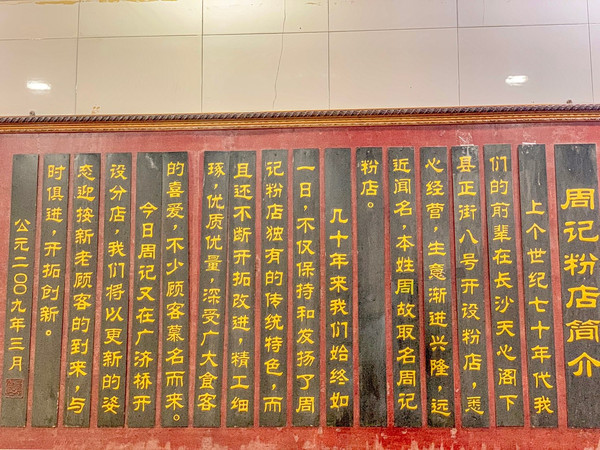 周记粉店简介
上个世纪七十年代我
们的前辈在长沙天心阁下
县正街八号开设粉店，悉
心经营，生意渐进兴隆，远
近闻名，本姓周故取名周记
粉店。
几十年来我们始终如
一日，不仅保持和发扬了周
记粉店独有的传统特色，而
且还不断开拓改进，精工细
琢，优质优量，深受广大食客
的喜爱，不少顾客慕名而来。
今日周记又在广济桥开
设分店，我们将以更新的姿
态迎接新老顾客的到来，与
时俱进，开拓创新。
公元二00九年三月